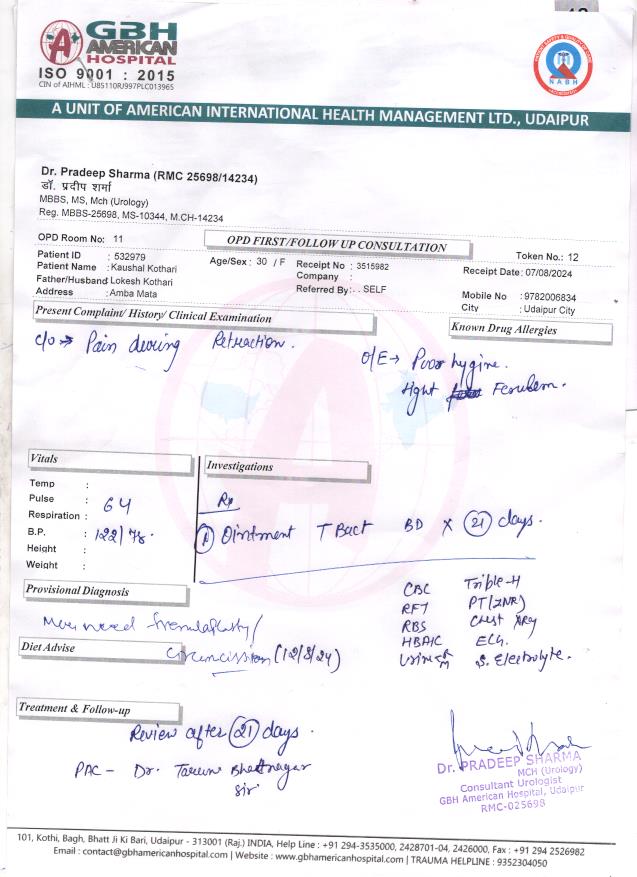 GBH
AMERICAN
HOSPITAL
ISO 9001 : 2015
CIN of AIHML : U85110RJ997PLC013965
NABH
A UNIT OF AMERICAN INTERNATIONAL HEALTH MANAGEMENT LTD., UDAIPUR
Dr. Pradeep Sharma (RMC 25698/14234)
डॉ. प्रदीप शर्मा
MBBS, MS, Mch (Urology)
Reg. MBBS-25698, MS-10344, M.CH-14234
OPD Room No: 11
OPD FIRST/FOLLOW UP CONSULTATION
Token No.: 12
Patient ID : 532979
Age/Sex : 30 / F
Receipt No : 3515982
Receipt Date: 07/08/2024
Patient Name : Kaushal Kothari
Company :
Father/Husband: Lokesh Kothari
Referred By: . . SELF
Mobile No : 9782006834
Address : Amba Mata
City : Udaipur City
Present Complaint/ History/ Clinical Examination
Known Drug Allergies
c/o → Pain devring Retraction.
O/E → Poor hygine.
Tight Fenulem.
Vitals
Investigations
Temp :
Pulse : 64
Respiration :
B.P. : 122/78.
Height :
Weight :
Rp
1 Ointment T Bact BD X 21 days.
Provisional Diagnosis
May need frenuloplasty/
Circumcission (12/8/24)
Diet Advise
CBC Trible-H
RFT PT(INR)
RBS Chest XRay
HBAIC ECG.
Urine S. Electrolyte.
Treatment & Follow-up
Review after 21 days.
PAC - Dr. Tarun Bhatnagar
Sir
Dr. PRADEEP SHARMA
MCH (Urology)
Consultant Urologist
GBH American Hospital, Udaipur
RMC-025698
101, Kothi, Bagh, Bhatt Ji Ki Bari, Udaipur - 313001 (Raj.) INDIA, Help Line : +91 294-3535000, 2428701-04, 2426000, Fax : +91 294 2526982
Email : contact@gbhamericanhospital.com | Website : www.gbhamericanhospital.com | TRAUMA HELPLINE : 9352304050